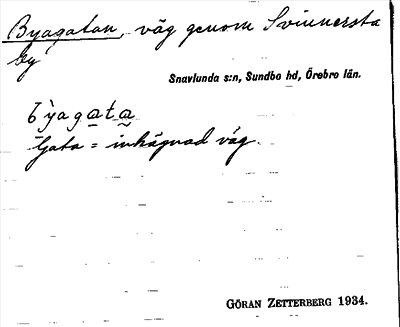 Byagatan, väg genom Svinnersta
by
Snavlunda s:n, Sundbo hd, Örebro län.
b̀yagata
Gata = inhägnad väg.
GÖRAN ZETTERBERG 1934.